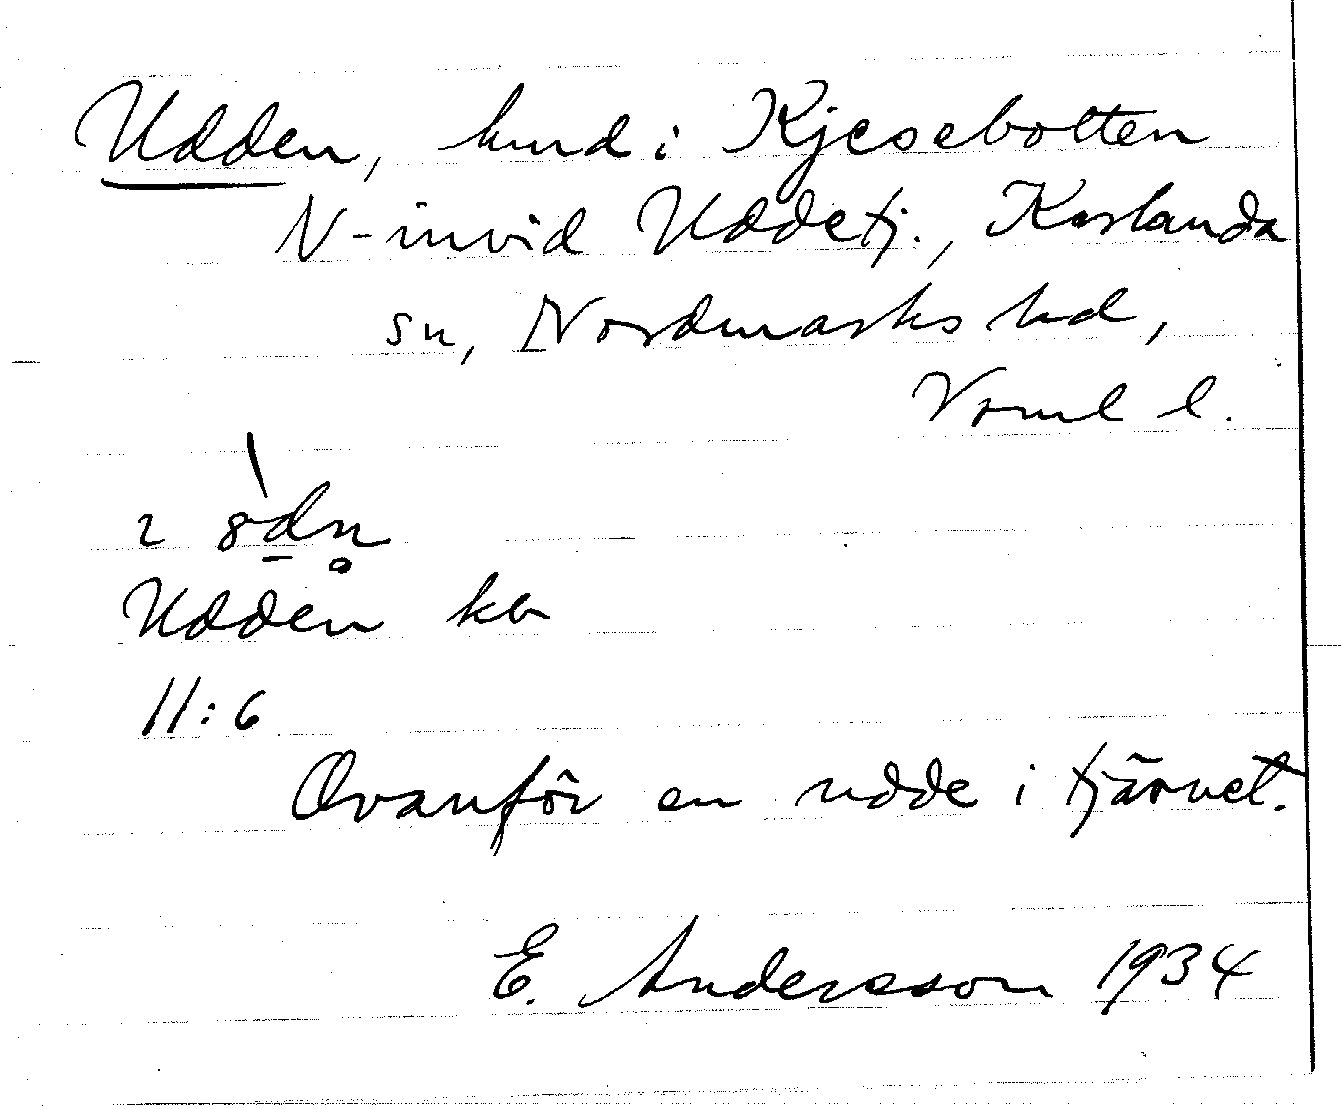 Udden, hmd i Kjesebotten
N-invid Uddetj., Karlanda
sn, Nordmarks hd,
Vrml l.
Udden kb
11:6
Ovanför en udde i tjärnet.
E. Andersson 1934